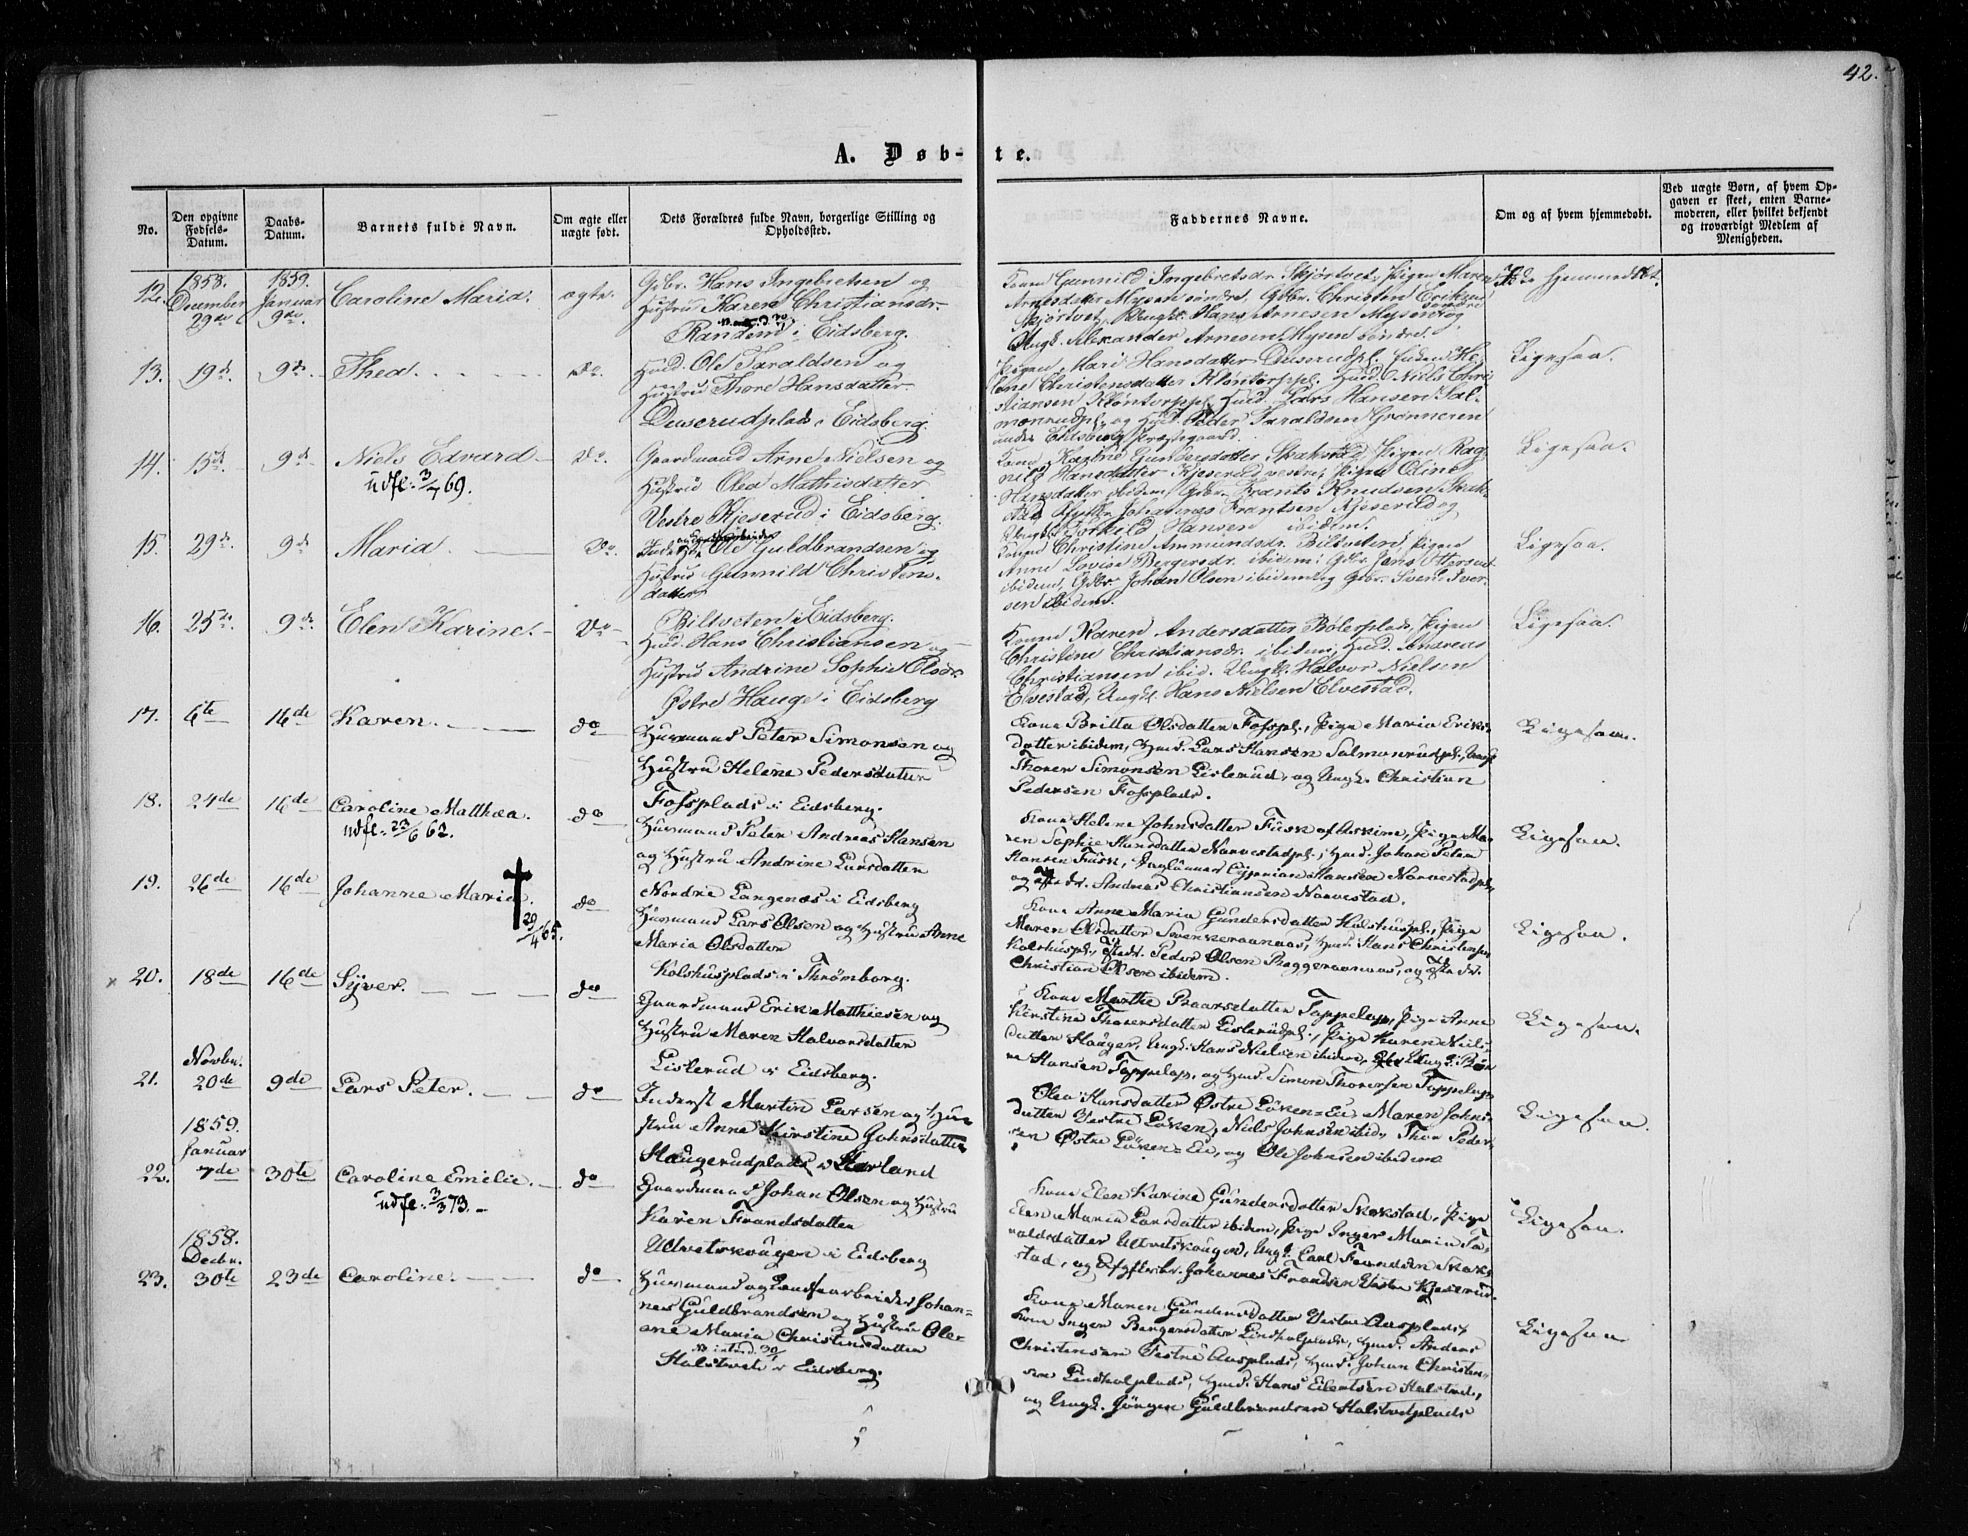 42.
A. Døb-te.
No.
Den opgivne Fødsels-Datum.
Daabs-Datum.
Barnets fulde Navn.
Om ægte eller uægte født.
Dets Forældres fulde Navn, borgerlige Stilling og Opholdssted.
Faddernes Navne.
Om og af hvem hjemmedøbt.
Ved uægte Børn, af hvem Opgaven er skeet, enten Barnemoderen, eller hvilket bekjendt og troværdigt Medlem af Menigheden.
12. 1858. December 29de 1859. Januar 9de Caroline Maria. ægte.
Gdbr. Hans Ingebretsen og
Hustru Karen Christiansdr.
Randem i Eidsberg.
Kone Gunnild Ingebretsdr. Skjørtvet, Pigen Maren
Arnesdatter Mysen søndre, Gdbr. Christen Eriksen
Skjørtvet, Ungk. Hans Arnesen Mysen og
Ungk. Alexander Arnesen Mysen søndre.
hjemmedøbt.
13. 19d. 9de Thea. Do.
Huusd. Ole Taraldsen og
Hustru Thore Hansdatter
Duserudplads i Eidsberg.
Pigen Mari Hansdatter Duserudpl.
Christensdatter Kløntorppl. Huusd. Niels Chri
stiansen Kløntorppl. Huusd. Lars Hansen Sal
monrudpl. og Huusd. Peder Taraldsen Grønneren
under Eidsberg Præstegaard.
Ligesaa.
14. 15d. 9d Niels Edvard Do.
udfl. 3/7 69.
Gaardmand Arne Nielsen og
Hustru Olea Mathisdatter
Vestre Kjeserud i Eidsberg.
Kone Karine Gundersdatter Skakstad, Pigen Rag
nild Hansdatter Kjeserud vestre, Pigen Oline
Hansdatter ibidem, Gdbr. Frants Knudsen Skak-
stad, Johannes Frantsen Kjeserud og
Ungk. Torkild Hansen ibidem.
Ligesaa.
15. 29d. 9d Maria. Do.
Ole Guldbrandsen og
Hustru Gunnild Christens-
datter
Biltveten i Eidsberg.
Kone Christine Ammundsdr. Biltveten, Pigen
Anne Lovise Bergersdr. ibidem, Gdbr. Jens Ottersen
ibidem, Gdbr. Johan Olsen ibidem og Gdbr. Svend Iver-
sen ibidem.
Ligesaa.
16. 25de. 9de Elen Karine. Do
Huusd. Hans Christiansen og
Hustru Andrine Sophie Olsdr.
Østre Hauge i Eidsberg
Kone Karen Andersdatter Bølerplads, Pigen
Christine Christiansdr. ibidem, Huusd. Andreas
Christiansen ibid. Ungk. Halvor Nielsen
Elvestad, Ungk. Hans Nielsen Elvestad.
Ligesaa.
17. 6te 16de Karen. do
Huusmand Peter Simonsen og
Hustru Helene Pedersdatter
Fossplads i Eidsberg.
Kone Britta Olsdatter Fosspl., Pige Maria Eriks-
datter ibidem, Huusd. Lars Hansen Salmonrudpl.,
Thorer Simonsen Lislerud, og Ungk. Christian
Pedersen Fossplads.
Ligesaa.
18. 24de 16de Caroline Matthea. do
udfl. 23/6 62.
Huusmand Peter Andreas Hansen
og Hustru Andrine Larsdatter
Nordre Langenæs i Eidsberg
Kone Helene Johnsdatter Fusk af Askim, Pige Ma-
ren Sophie Hansdatter Narvestadpl., Huusd. Johan Peter
Hansen Fusk, Cyprian Hansen Narvestadpl.
og Andreas Christiansen Narvestad.
Ligesaa.
19. 26de 16de Johanne Maria. do
29/4 65.
Huusmand Lars Olsen og Hustru Anne
Maria Olsdatter
Kolshusplads i Thrømborg.
Kone Anne Maria Gundersdatter Kolshuspl., Pige
Maren Olsdatter Huusd. Hans Christensen
Kolshuspl., Peder Olsen og
Christian Olsen ibidem.
Ligesaa.
x 20. 18de 16de Syver. do
Gaardmand Erik Matthiesen og
Hustru Maren Halvorsdatter
Lislerud i Eidsberg.
Kone Marthe Tappelap, Pige Anne
Kirstine Thorersdatter Lislerudpl., Pige Karen Niels-
datter Hauger, Ungk. Hans Nielsen ibidem,
Hansen Tappelap, og Huusd. Simon Thorersen Tappelap
Ligesaa.
21. Novbr. 20de 9de Lars Peter. do
Inderst Martin Larsen og Hu-
stru Anne Kirstine Johnsdatter
Haugerudplads i Hærland
Olea Hansdatter Østre Løken-Eie, Maren Johns-
datter Vestre Løken, Niels Johnsen ibid., Thor Peder-
sen Østre Løken-Eie, og Ole Johnsen ibidem
Ligesaa.
22. 1859. Januar 7de 30te Caroline Emilie. do
udfl. 3/3 73.
Gaardmand Johan Olsen og Hustru
Karen Frandsdatter
Ultvetskougen i Eidsberg
Kone Elen Karine Gundersdatter Skakstad, Pige
Elen Maria Larsdatter ibidem, Pige Inger Maria Ta-
raldsdatter Ultvetskougen, Ungk. Carl Frandsen Skak-
stad, og Johannes Frandsen Vestre Kjeserud.
Ligesaa.
23. 1858. Decbr. 30te 23de Caroline. do
Huusmand og Johan-
nes Guldbrandsen og Hustru Ole-
ane Maria Christensdatter
Halstvedt i Eidsberg.
Kone Maren Gundersdatter Vestre Aasplads
Kone Inger Bergersdatter Huusd. Anders
Christensen Vestre Aasplads, Huusd. Johan Christen-
sen Huusd. Hans Eilertsen
og Ungk. Jørgen Guldbrandsen Halstvedtplads
Ligesaa